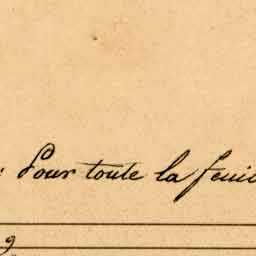 : Pour toute la feuil
9